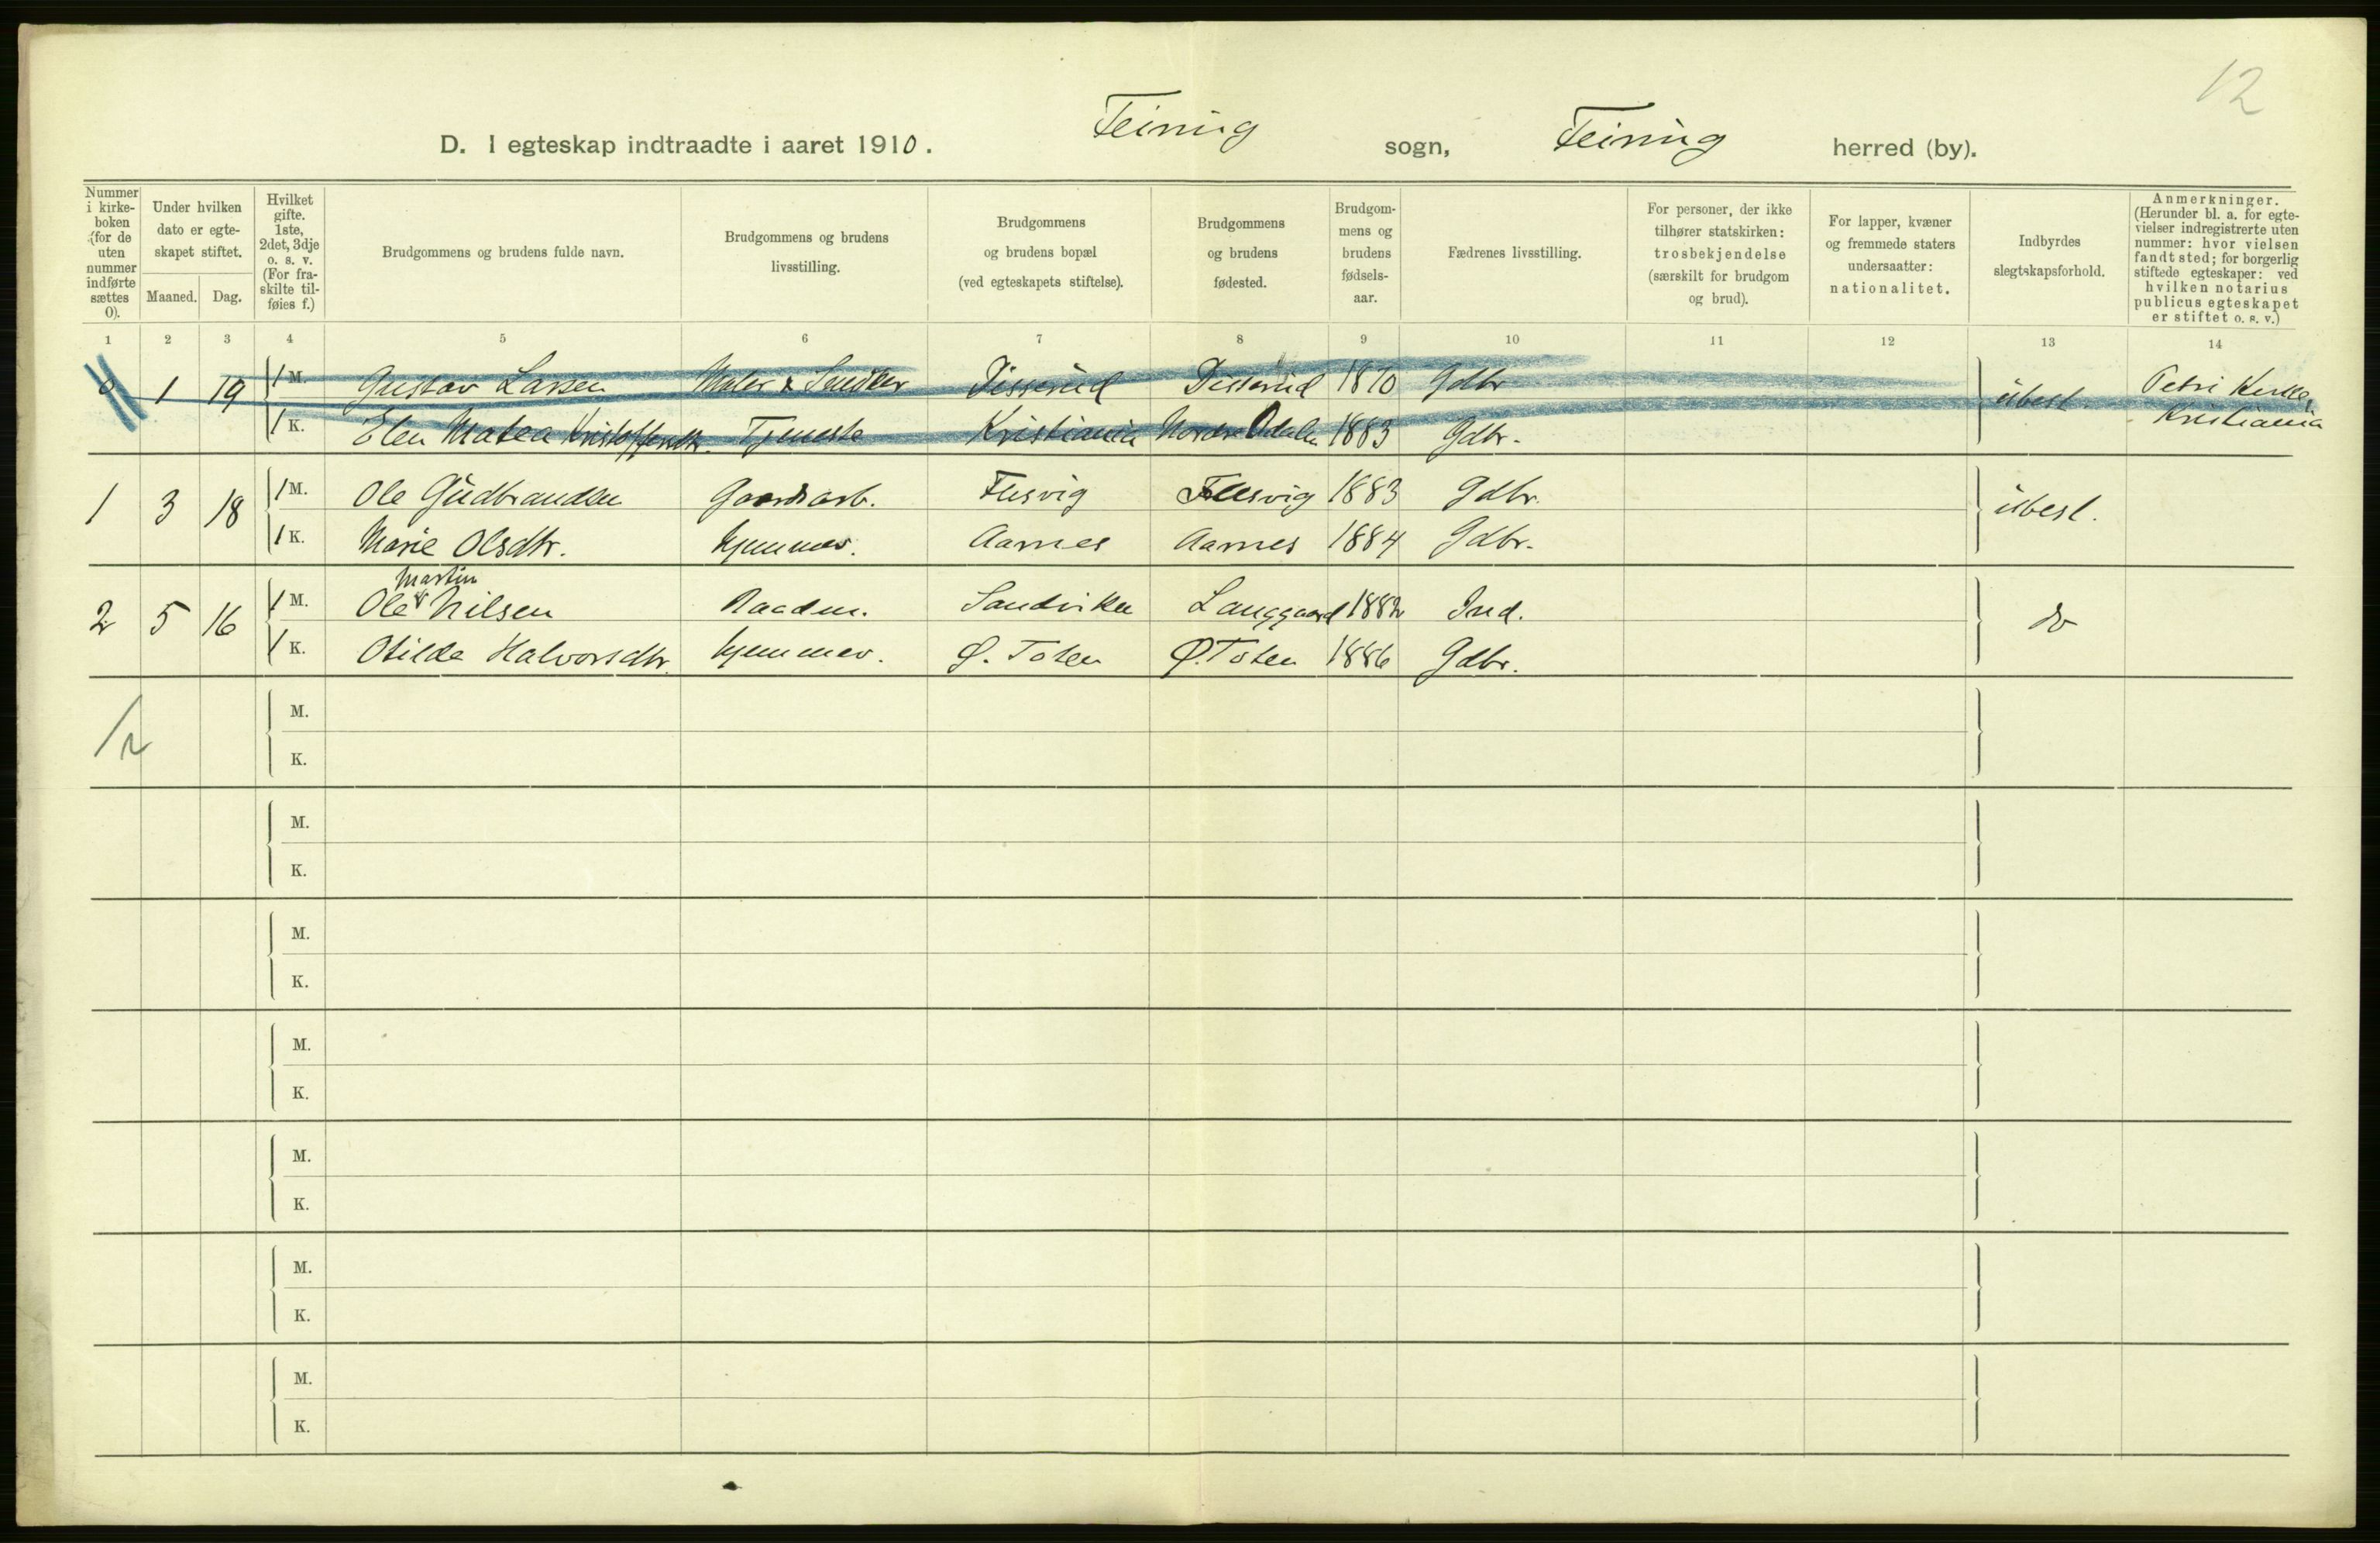 12
D. I egteskap indtraadte i aaret 1910. Feiring sogn, Feiring herred (by).
Nummer i kirkeboken (for de uten nummer indførte sættes 0).
Under hvilken dato er egteskapet stiftet.
Maaned. Dag.
Hvilket gifte. 1ste, 2det, 3dje o. s. v. (For fraskilte tilføies f.)
Brudgommens og brudens fulde navn.
Brudgommens og brudens livsstilling.
Brudgommens og brudens bopæl (ved egteskapets stiftelse).
Brudgommens og brudens fødested.
Brudgommens og brudens fødselsaar.
Fædrenes livsstilling.
For personer, der ikke tilhører statskirken: trosbekjendelse (særskilt for brudgom og brud).
For lapper, kvæner og fremmede staters undersaatter: nationalitet.
Indbyrdes slegtskapsforhold.
Anmerkninger. (Herunder bl. a. for egtevielser indregistrerte uten nummer: hvor vielsen fandt sted; for borgerlig stiftede egteskaper: ved hvilken notarius publicus egteskapet er stiftet o. s. v.)
1 2 3 4 5 6 7 8 9 10 11 12 13 14
0 1 19 1 M. Gustav Larsen Maler & Snedker Disserud Disserud 1870 Gdbr ubesl. Petri Kirke,
1 K. Elen Matea Kristoffersdtr. Tjeneste Kristiania Nordre Odalen 1883 Gdbr. Kristiania
1 3 18 1 M. Ole Gudbrandsen Gaardsarb. Flesvig Flesvig 1883 Gdbr. ubesl.
1 K. Marie Olsdtr. hjemmev. Aarnes Aarnes 1884 Gdbr.
Martin
2 5 16 1 M. Ole Nilsen Sandviken Langgaard 1882 Ind. do
1 K. Otilde Halvorsdtr. hjemmev. Ø. Toten Ø. Toten 1886 Gdbr.
/2 M.
K.
M.
K.
M.
K.
M.
K.
M.
K.
M.
K.
M.
K.